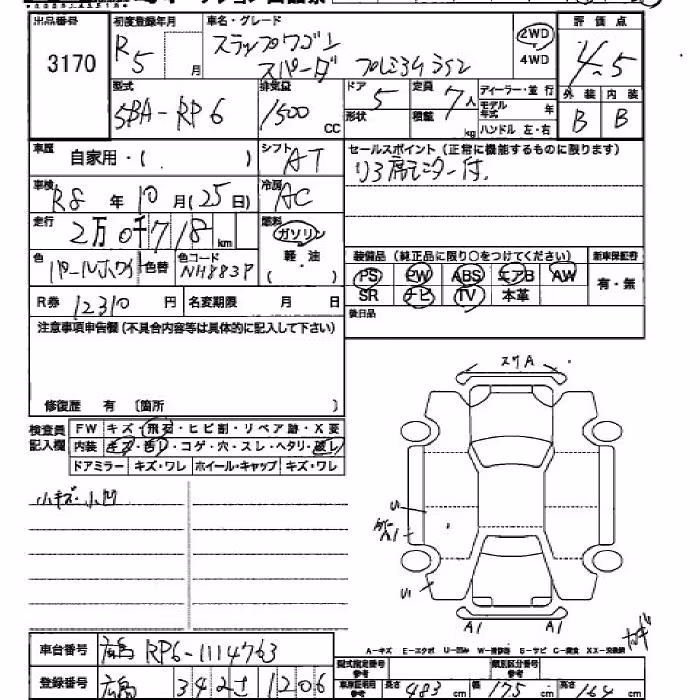 出品番号 3170
初度登録年月 R5 月
車名・グレード ステップワゴン スパーダ
2WD 4WD
評価点 4.5
型式 5BA-RP6
排気量 1500 CC
ドア 5
形状
定員 7人
積載 kg
ディーラー・並行
モデル年式 年
ハンドル 左・右
外装 B
内装 B
車歴 自家用・( )
シフト AT
セールスポイント(正常に機能するものに限ります)
車検 R8年10月(25日)
冷房 AC
走行 2万0千718km
燃料 ガソリン 軽油 ( )
色 パールホワイ
色替
色コード NH883P
装備品(純正品に限り○をつけてください)
新車保証書 有・無
PS PW ABS エアB AW
SR ナビ TV 本革
R券 12310円
名変期限 月 日
後日品
注意事項申告欄(不具合内容等は具体的に記入して下さい)
修復歴 有 〔箇所 〕
検査員記入欄
FW キズ・飛石・ヒビ割・リペア跡・X要
内装 キズ・汚レ・コゲ・穴・スレ・ヘタリ・破レ
ドアミラー キズ・ワレ ホイール・キャップ キズ・ワレ
小キズ・小凹
スリA
U
A1
U
A1 A1
車台番号 RP6-1114763
A-キズ E-エクボ U-凹み W-補修跡 S-サビ C-腐食 X-交換跡
登録番号 広島 342 さ 1206
型式指定番号 参考
類別区分番号 参考
車庫証明用 参考 長さ 483cm 幅 175cm 高さ 164cm